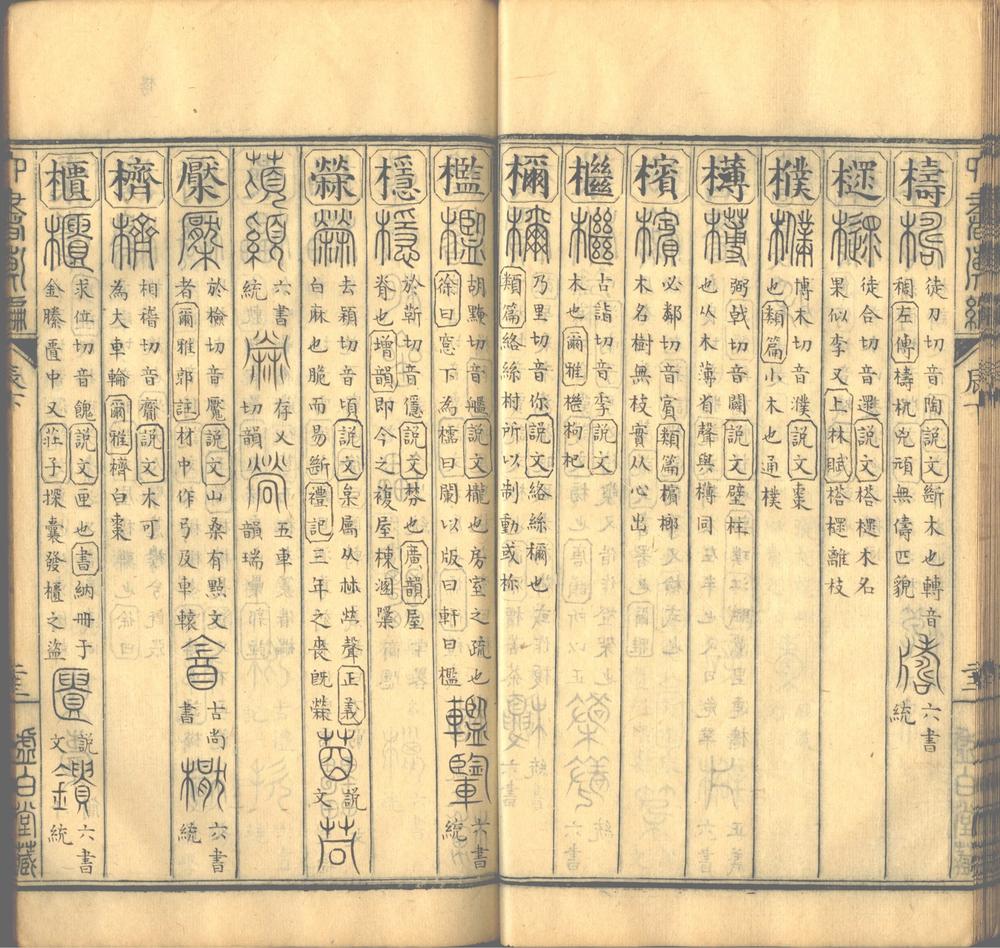 檮 徒刀切音陶說文斷木也轉音
稠左傳檮杌兇頑無儔匹貌 六書
統
樏 徒合切音遝說文榙樏木名
果似李又上林賦榙樏離枝
樸 博木切音濮說文棗
也類篇小木也通樸
欂 弼戟切音闢說文壁柱
也从木薄省聲與欂同
檳 必鄰切音賓類篇檳榔
木名樹無枝實从心出
檵 古詣切音季說文
木也爾雅檵枸杞
檷 乃里切音你說文絡絲檷也
類篇絡絲柎所以制動或柅
檻 胡黤切音艦說文櫳也房室之疏也
徐曰窓下為櫺曰闌以版曰軒曰檻 六書
統
檼 於靳切音隱說文棼也廣韻屋
脊也增韻即今之複屋棟
檾 去穎切音頃說文枲屬从林熒聲正義
白麻也脆而易斷禮記三年之喪旣檾 說
文
六書
統 存乂
切韻 五車
韻瑞
檿 於檢切音魘說文山桑有點文
者爾雅郭註材中作弓及車轅 古尚
書 六書
統
櫅 相稽切音齋說文木可
為大車輪爾雅櫅白棗
櫃 求位切音餽說文匣也書納冊于
金縢匱中又莊子探囊發櫃之盜 說
文 六書
統
虛白堂藏